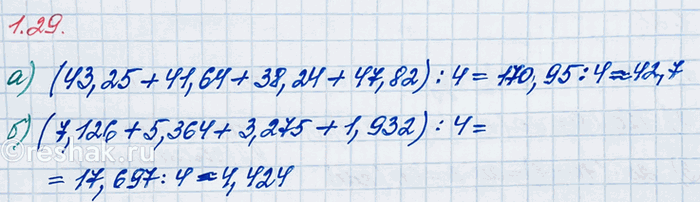 1.29.
а) (43,25 + 41,64 + 38,24 + 47,82) : 4 = 170,95 : 4 ≈ 42,7
б) (7,126 + 5,364 + 3,275 + 1,932) : 4 =
= 17,697 : 4 ≈ 4,424
©reshak.ru